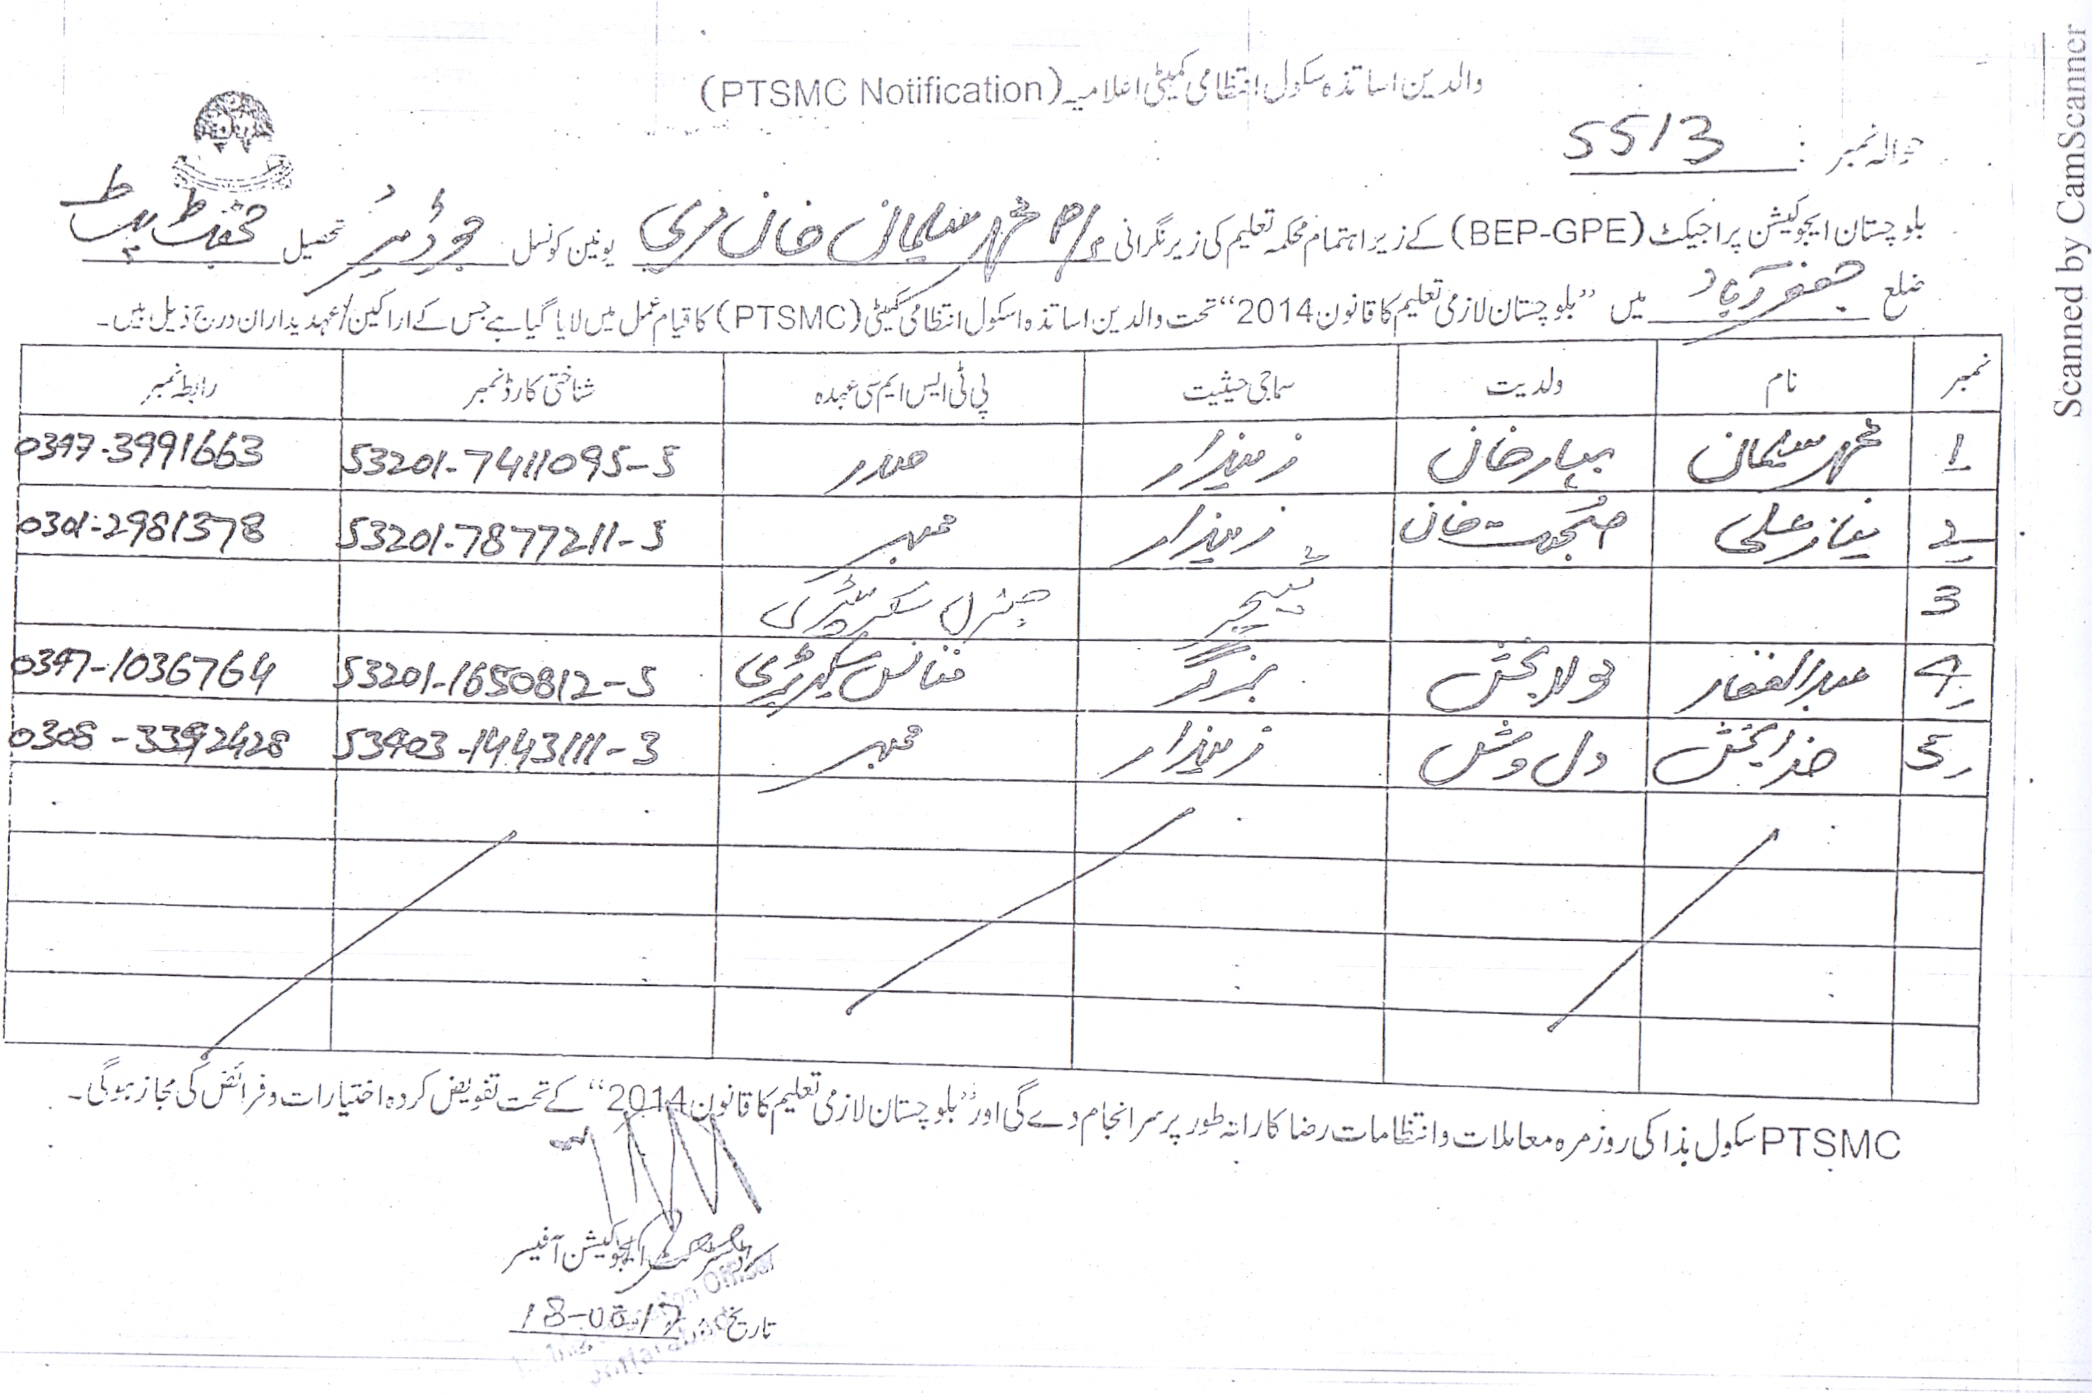 والدین اساتذہ سکول انتظامی کمیٹی اعلامیہ (PTSMC Notification)
حوالہ نمبر : 5513
بلوچستان ایجوکیشن پراجیکٹ (BEP-GPE) کے زیر اہتمام محکمہ تعلیم کی زیر نگرانی محمد سلیمان خان مری یونین کونسل تحصیل
ضلع جعفر آباد میں ”بلوچستان لازمی تعلیم کا قانون 2014“ تحت والدین اساتذہ اسکول انتظامی کمیٹی (PTSMC) کا قیام عمل میں لایا گیا ہے جس کے اراکین/عہدیداران درج ذیل ہیں۔
نمبر نام ولدیت سماجی حیثیت پی ٹی ایس ایم سی عہدہ شناختی کارڈ نمبر رابطہ نمبر
1 محمد سلیمان بہار خان زمیندار صدر 53201-7411095-5 0347-3991663
2 نیاز علی خان زمیندار ممبر 53201-7877211-5 0301-2981378
3 ٹیچر جنرل سیکریٹری
4 عبدالغفار مولا بخش بزگر فنانس سیکریٹری 53201-1650812-5 0347-1036764
5 خدا بخش دل وش زمیندار ممبر 53403-1443111-3 0308-3392428
PTSMC سکول ہذا کی روز مرہ معاملات و انتظامات رضا کارانہ طور پر سر انجام دے گی اور ”بلوچستان لازمی تعلیم کا قانون 2014“ کے تحت تفویض کردہ اختیارات و فرائض کی مجاز ہوگی۔
ڈسٹرکٹ ایجوکیشن آفیسر
تاریخ: 18-05-17
Scanned by CamScanner